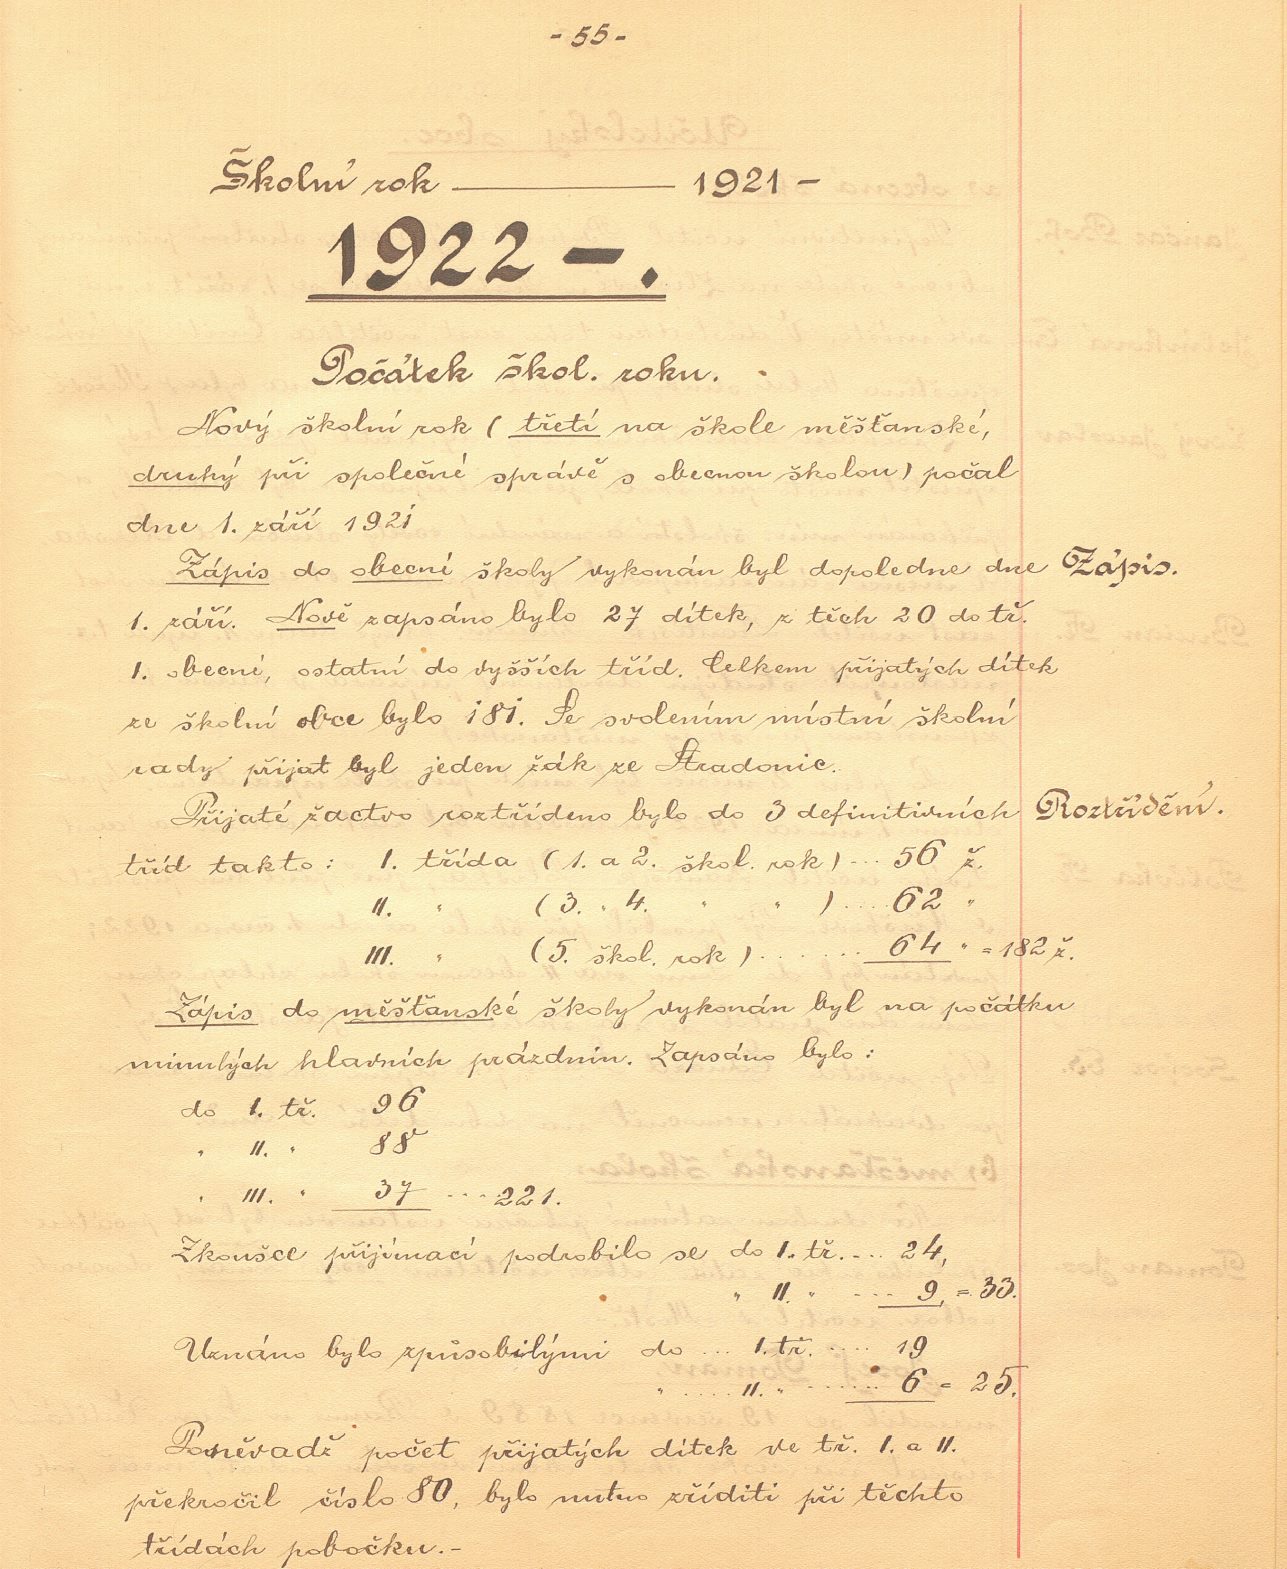 - 55 -
Školní rok ——— 1921 -
1922 -.
Počátek škol. roku.
Nový školní rok ( třetí na škole měšťanské,
druhý při společné správě s obecnou školou ) počal
dne 1. září 1921
Zápis do obecní školy vykonán byl dopoledne dne
Zápis.
1. září. Nově zapsáno bylo 27 dítek, z těch 20 do tř.
1. obecné, ostatní do vyšších tříd. Celkem přijatých dítek
ze školní obce bylo 181. Se svolením místní školní
rady přijat byl jeden žák ze Stradonic.
Přijaté žactvo roztříděno bylo do 3 definitivních
Roztřídění.
tříd takto: I. třída ( 1. a 2. škol. rok ) ... 56 ž.
II. " ( 3. " 4. " " ) .... 62 "
III. " ( 5. škol. rok ) ....... 64 " = 182 ž.
Zápis do měšťanské školy vykonán byl na počátku
minulých hlavních prázdnin. Zapsáno bylo:
do I. tř. 96
" II. " 88
" III. " 37 .... 221.
Zkoušce přijímací podrobilo se do I. tř. ... 24,
" II. " .... 9, = 33.
Uznáno bylo způsobilými do ... I. tř. .... 19
" .... II. " ...... 6 = 25.
Poněvadž počet přijatých dítek ve tř. I. a II.
překročil číslo 80, bylo nutno zříditi při těchto
třídách pobočku.-